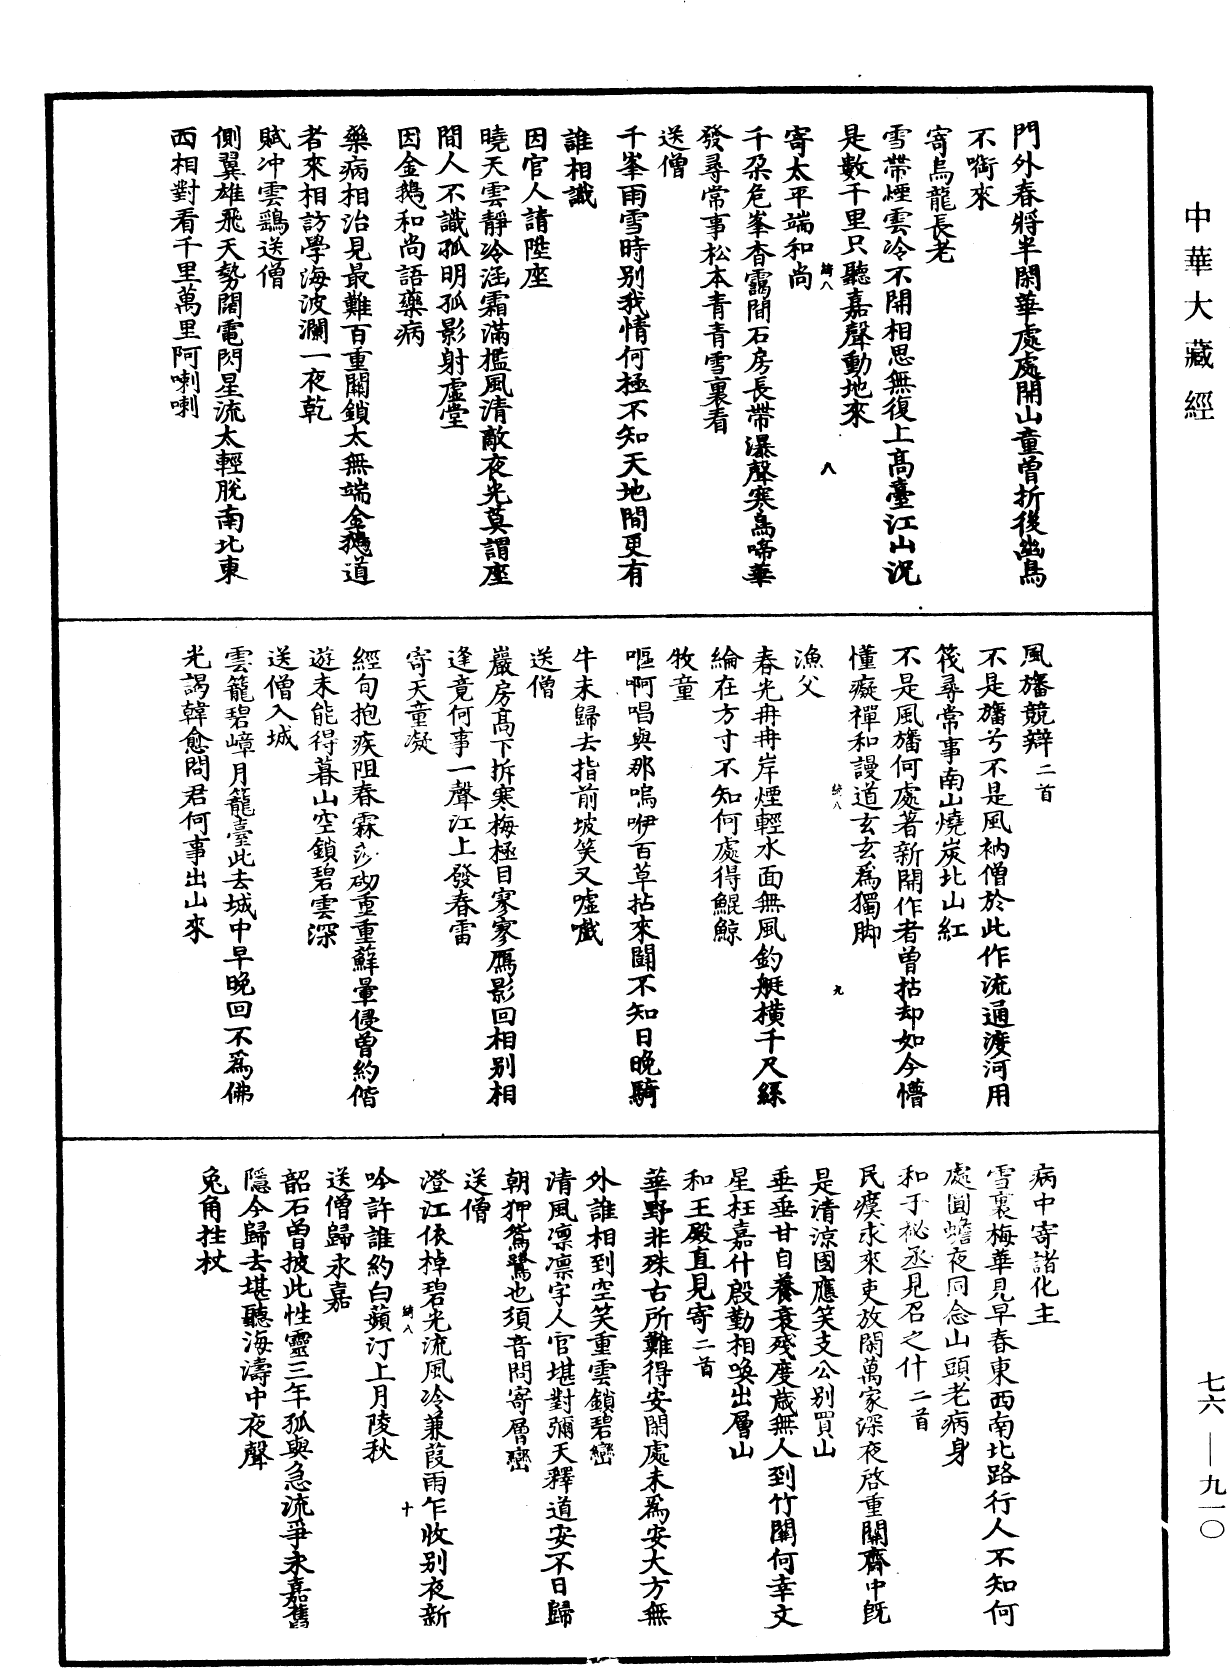 中華大藏經
門外春將半閑華處處開山童曾折後幽鳥
不銜來
寄烏龍長老
雪帶煙雲冷不開相思無復上高臺江山況
是數千里只聽嘉聲動地來
寄太平端和尚
千朶危峯杳靄間石房長帶瀑聲寒鳥啼華
發尋常事松本青青雪裏看
送僧
千峯雨雪時別我情何極不知天地間更有
誰相識
因官人請陞座
曉天雲靜冷涵霜滿檻風清敵夜光莫謂座
間人不識孤明孤影射虛堂
因金鵝和尚語藥病
藥病相治見最難百重關鎖太無端金鵝道
者來相訪學海波瀾一夜乾
賦冲雲鷂送僧
側翼雄飛天勢闊電閃星流太輕脫南北東
西相對看千里萬里阿喇喇
八
風旛競辯二首
不是旛兮不是風衲僧於此作流通渡河用
筏尋常事南山燒炭北山紅
不是風旛何處著新開作者曾拈却如今懵
懂癡禪和謾道玄玄爲獨脚
漁父
春光冉冉岸煙輕水面無風釣艇橫千尺絲
綸在方寸不知何處得鯤鯨
牧童
嘔啊唱與那嗚咿百草拈來鬬不知日晚騎
牛未歸去指前坡笑又噓戲
送僧
巖房高下拆寒梅極目寥寥鴈影回相別相
逢竟何事一聲江上發春雷
寄天童凝
經句抱疾阻春霖莎砌重重蘚暈侵曾約偕
遊未能得暮山空鎖碧雲深
送僧入城
雲籠碧嶂月籠臺此去城中早晚回不爲佛
光謁韓愈問君何事出山來
九
病中寄諸化主
雪裏梅華見早春東西南北路行人不知何
處圓蟾夜同念山頭老病身
和于祕丞見召之什二首
民瘼求來吏放閑萬家深夜啓重關齋中旣
是清涼國應笑支公別買山
垂垂甘自養衰殘度歲無人到竹關何幸文
星枉嘉什殷勤相喚出層山
和王殿直見寄二首
華野非殊古所難得安閑處未爲安大方無
外誰相到空笑重雲鎖碧巒
清風凛凛宇人官堪對彌天釋道安不日歸
朝狎鴛鷺也須音問寄層巒
送僧
澄江依棹碧光流風冷蒹葭雨乍收別夜新
吟許誰約白蘋汀上月陵秋
送僧歸永嘉
韶石曾披此性靈三年孤與急流爭永嘉舊
隱今歸去堪聽海濤中夜聲
兔角拄杖
十
七六—九一〇